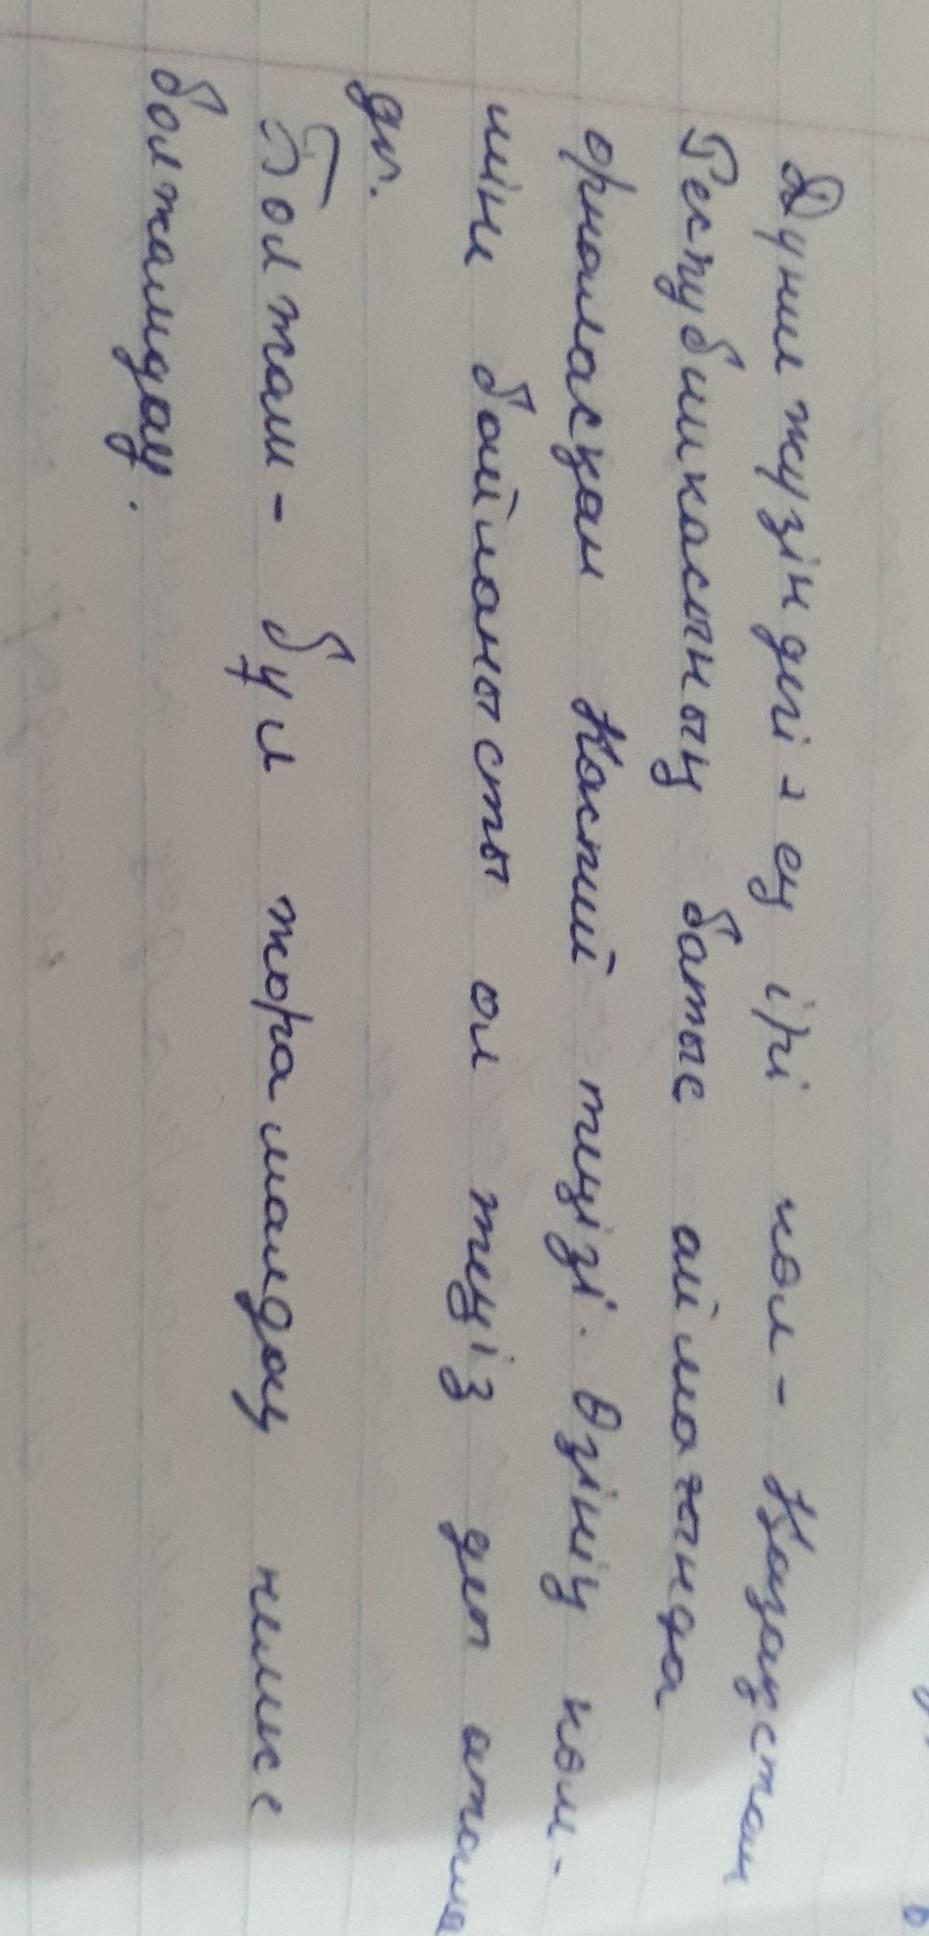 Дүние жүзіндегі ең ірі көл - Қазақстан
Республикасының батыс аймағында
орналасқан Каспий теңізі. Өзінің көле-
міне байланысты ол теңіз деп атала
ды.
Болжам - бұл жорамалдау немесе
болжамдау.